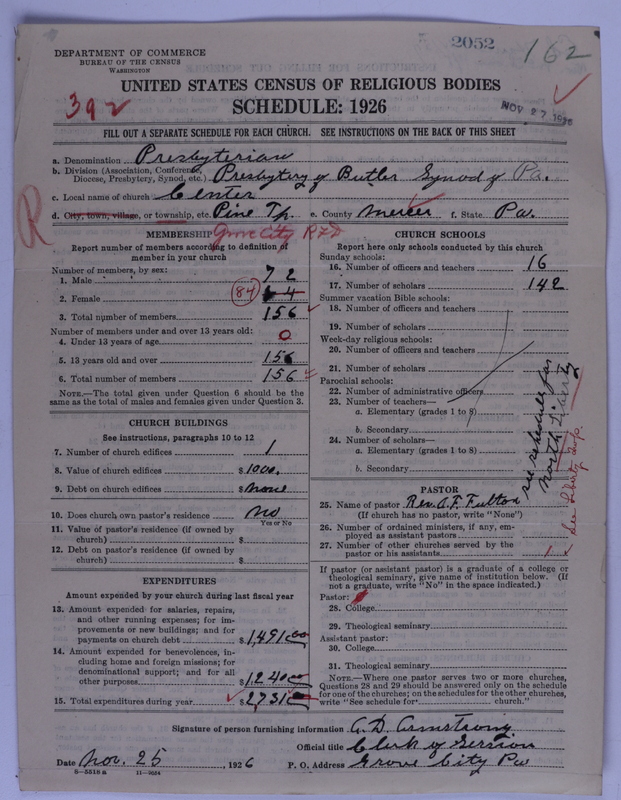 2052
162
DEPARTMENT OF COMMERCE
BUREAU OF THE CENSUS
WASHINGTON
UNITED STATES CENSUS OF RELIGIOUS BODIES
392
SCHEDULE: 1926
NOV 27 1926
FILL OUT A SEPARATE SCHEDULE FOR EACH CHURCH. SEE INSTRUCTIONS ON THE BACK OF THIS SHEET
a. Denomination Presbyterian
b. Division (Association, Conference, Diocese, Presbytery, Synod, etc.) Presbytery of Butler Synod of Pa.
c. Local name of church Center
d. City, town, village, or township, etc. Pine Tp. e. County Mercer f. State Pa.
R
Grove City RFD
MEMBERSHIP
Report number of members according to definition of
member in your church
Number of members, by sex:
1. Male 72
2. Female (84) 4
3. Total number of members 156
Number of members under and over 13 years old:
4. Under 13 years of age 0
5. 13 years old and over 156
6. Total number of members 156
NOTE.—The total given under Question 6 should be
the same as the total of males and females given under Question 3.
CHURCH BUILDINGS
See instructions, paragraphs 10 to 12
7. Number of church edifices 1
8. Value of church edifices $1000.
9. Debt on church edifices $none
10. Does church own pastor's residence no
Yes or No
11. Value of pastor's residence (if owned by
church) $
12. Debt on pastor's residence (if owned by
church) $
EXPENDITURES
Amount expended by your church during last fiscal year
13. Amount expended for salaries, repairs,
and other running expenses; for im-
provements or new buildings; and for
payments on church debt $1,491.00
14. Amount expended for benevolences, in-
cluding home and foreign missions; for
denominational support; and for all
other purposes 1,240.00
15. Total expenditures during year $2731.00
CHURCH SCHOOLS
Report here only schools conducted by this church
Sunday schools:
16. Number of officers and teachers 16
17. Number of scholars 142
Summer vacation Bible schools:
18. Number of officers and teachers
19. Number of scholars
Week-day religious schools:
20. Number of officers and teachers
21. Number of scholars
Parochial schools:
22. Number of administrative officers
23. Number of teachers—
a. Elementary (grades 1 to 8)
b. Secondary
24. Number of scholars—
a. Elementary (grades 1 to 8)
b. Secondary
see schedule for
North Liberty
See Liberty
PASTOR
25. Name of pastor Rev. A. F. Fulton
(If church has no pastor, write "None")
26. Number of ordained ministers, if any, em-
ployed as assistant pastors
27. Number of other churches served by the
pastor or his assistants 1
If pastor (or assistant pastor) is a graduate of a college or
theological seminary, give name of institution below. (If
not a graduate, write "No" in the space indicated.)
Pastor:
28. College
29. Theological seminary
Assistant pastor:
30. College
31. Theological seminary
NOTE.—Where one pastor serves two or more churches,
Questions 28 and 29 should be answered only on the schedule
for one of the churches; on the schedules for the other churches,
write "See schedule for church."
Signature of person furnishing information C. D. Armstrong
Official title Clerk of Session
Date Nov. 25, 1926 P. O. Address Grove City Pa
8-5518a 11-9024